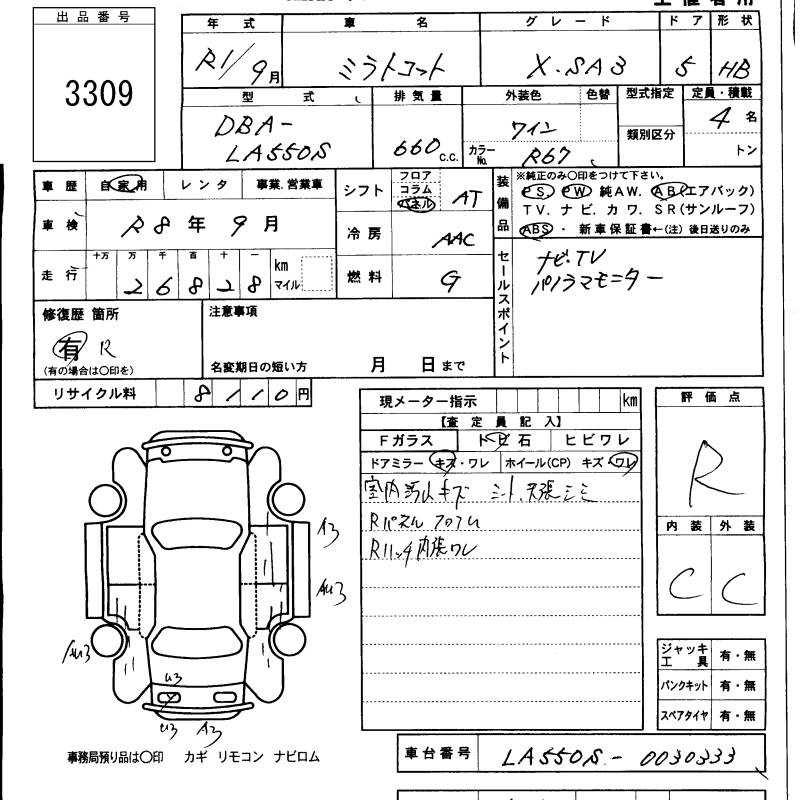 出品番号
3309
年式 車名 グレード ドア 形状
R1/9月 ミラトコット X.SAⅢ 5 HB
型式 排気量 外装色 色替 型式指定 定員・積載
DBA-
LA550S 660 c.c. ワイン 類別区分 4名
カラーNo. R67 トン
車歴 自家用 レンタ 事業.営業車
車検 R8年9月
走行 十万 万 千 百 十 一
26828 km
マイル
シフト フロア コラム パネル AT
冷房 AAC
燃料 G
装備品
※純正のみ○印をつけて下さい。
PS PW 純AW. AB(エアバック)
TV. ナビ. カワ. SR(サンルーフ)
ABS ・ 新車保証書←(注) 後日送りのみ
セールスポイント
ナビ.TV
パノラマモニター
修復歴 箇所
有 R
(有の場合は○印を)
注意事項
名変期日の短い方 月 日まで
リサイクル料 8110円
現メーター指示 km
【査定員記入】
Fガラス トビ石 ヒビワレ
ドアミラー キズ・ワレ ホイール(CP) キズ・ワレ
室内汚レキズ シート.天張シミ
Rパネル フロアム
Rハッチ内張ワレ
評価点
R
内装 外装
C C
A3
AU3
AU3
U3
U3 A3
ジャッキ工具 有・無
パンクキット 有・無
スペアタイヤ 有・無
事務局預り品は○印 カギ リモコン ナビロム
車台番号 LA550S-0030333